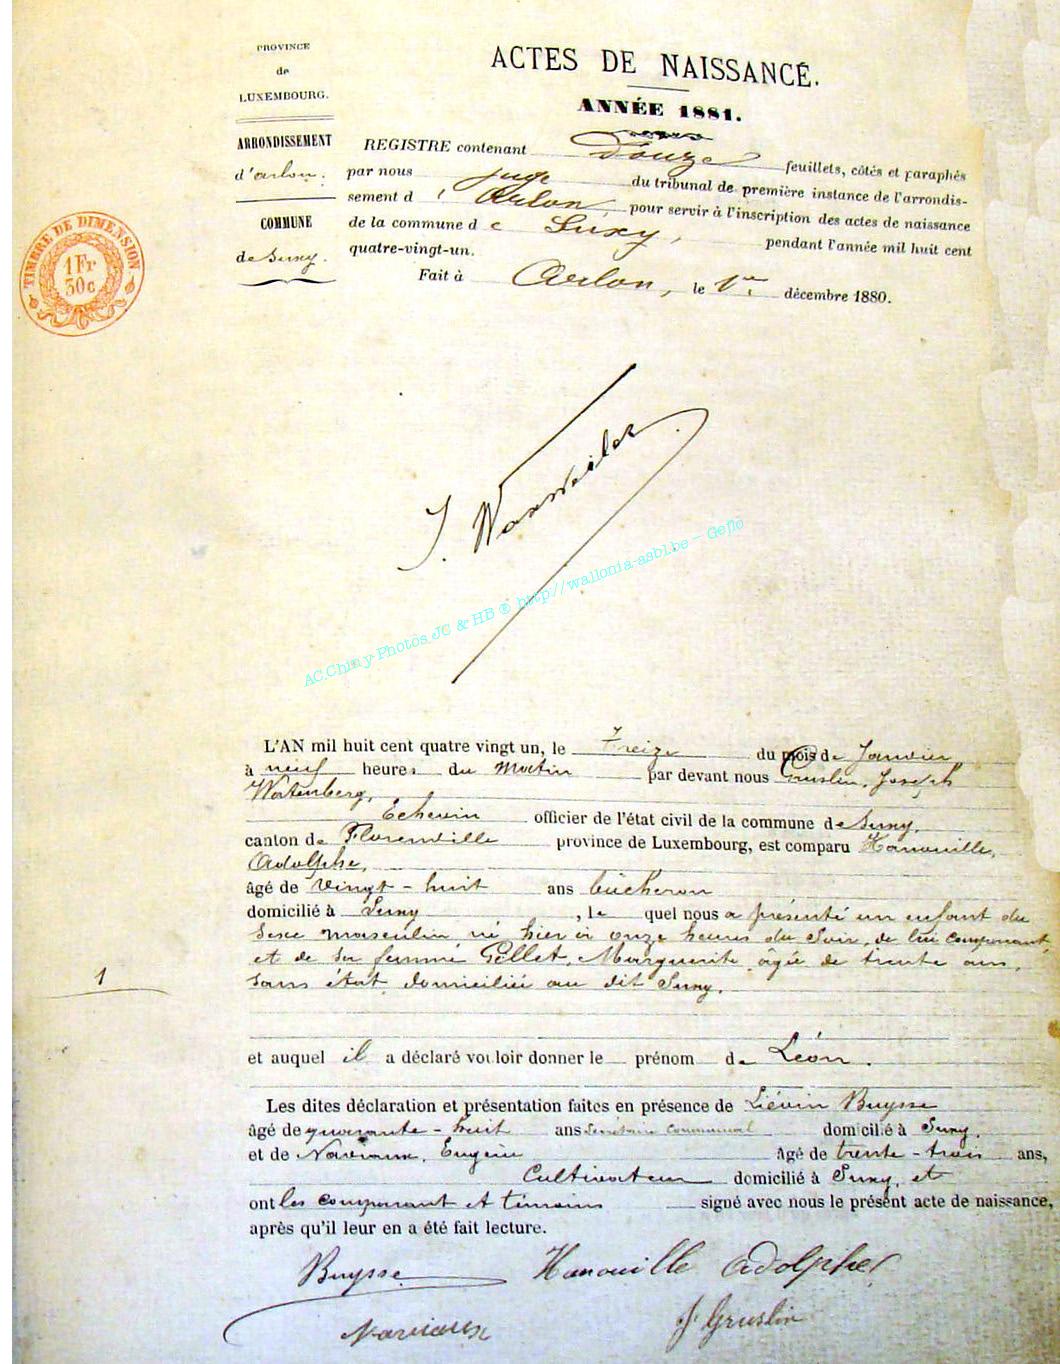 PROVINCE
de
LUXEMBOURG.
ARRONDISSEMENT
d'arlon.
COMMUNE
de Suxy.
TIMBRE DE DIMENSION
1 Fr
30c
ACTES DE NAISSANCE.
ANNÉE 1881.
REGISTRE contenant Douze feuillets, côtés et paraphés
par nous juge du tribunal de première instance de l'arrondis-
sement d'Arlon, pour servir à l'inscription des actes de naissance
de la commune de Suxy, pendant l'année mil huit cent
quatre-vingt-un.
Fait à Arlon, le 1er décembre 1880.
J. Waxweiler
AC.Chiny-Photos JC & HB ® http//wallonia-asbl.be - Geflo
L'AN mil huit cent quatre vingt un, le treize du mois de Janvier
à neuf heures du Matin par devant nous Gruslin, Joseph
Watenberg,
Echevin officier de l'état civil de la commune de Suxy,
canton de Florenville province de Luxembourg, est comparu Hanouille,
Adolphe,
âgé de vingt-huit ans bûcheron
domicilié à Suxy, le quel nous a présenté un enfant du
sexe masculin né hier à onze heures du Soir, de lui comparant
et de sa femme Gillet, Marguerite âgée de trente ans,
sans état domiciliée au dit Suxy.
1
et auquel il a déclaré vouloir donner le prénom de Léon.
Les dites déclaration et présentation faites en présence de Liévin Buysse
âgé de quarante-huit ans Secrétaire Communal domicilié à Suxy,
et de Naviaux, Eugène Agé de trente-trois ans,
Cultivateur domicilié à Suxy, et
ont les comparant et témoins signé avec nous le présent acte de naissance,
après qu'il leur en a été fait lecture.
Buysse Hanouille Adolphe
Naviaux J Gruslin